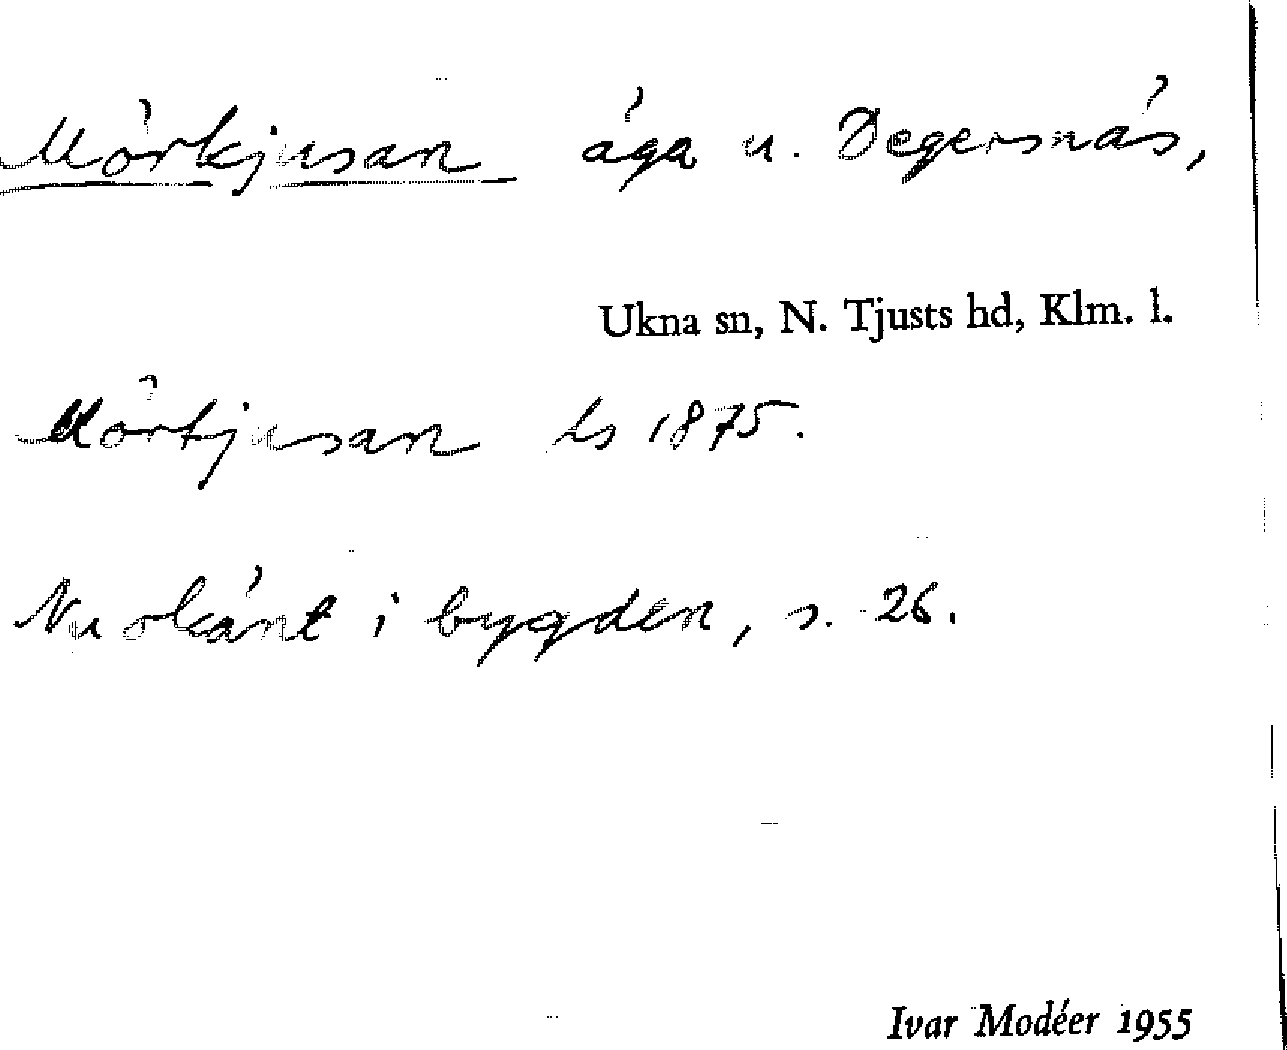 Mörkjusan äga u. Degersnäs,
Ukna sn, N. Tjusts hd, Klm. l.
Mörtjusan Ls 1875.
Nu okänt i bygden, s. 26.
Ivar Modéer 1955